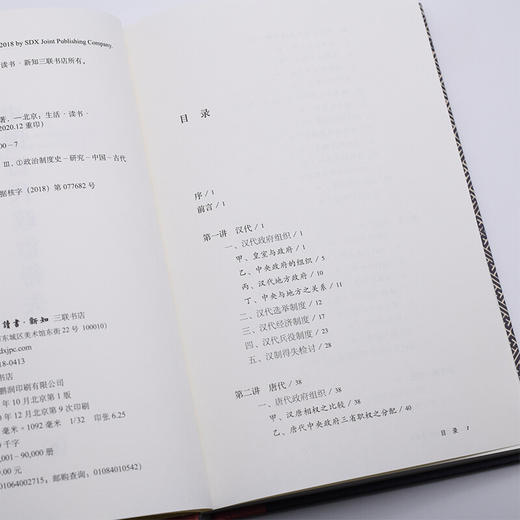 2018 by SDX Joint Publishing Company.
读书·新知三联书店所有。
著.—北京：生活·读书·
2020.12 重印）
00－7
Ⅲ.①政治制度史－研究－中国－古代
据核字（2018）第 077682 号
讀書·新知 三联书店
东城区美术馆东街 22 号 100010）
dxjpc.com
18-0413
书店
鹏润印刷有限公司
年 10 月北京第 1 版
0 年 12 月北京第 9 次印刷
毫米×1092 毫米 1/32 印张 6.25
千字
,001–90,000 册
.00 元
01064002715；邮购查询：01084010542）
目 录
序 / 1
前言 / 1
第一讲 汉代 / 1
一、汉代政府组织 / 1
甲、皇室与政府 / 1
乙、中央政府的组织 / 5
丙、汉代地方政府 / 10
丁、中央与地方之关系 / 11
二、汉代选举制度 / 12
三、汉代经济制度 / 17
四、汉代兵役制度 / 23
五、汉制得失检讨 / 28
第二讲 唐代 / 38
一、唐代政府组织 / 38
甲、汉唐相权之比较 / 38
乙、唐代中央政府三省职权之分配 / 40
目 录 1